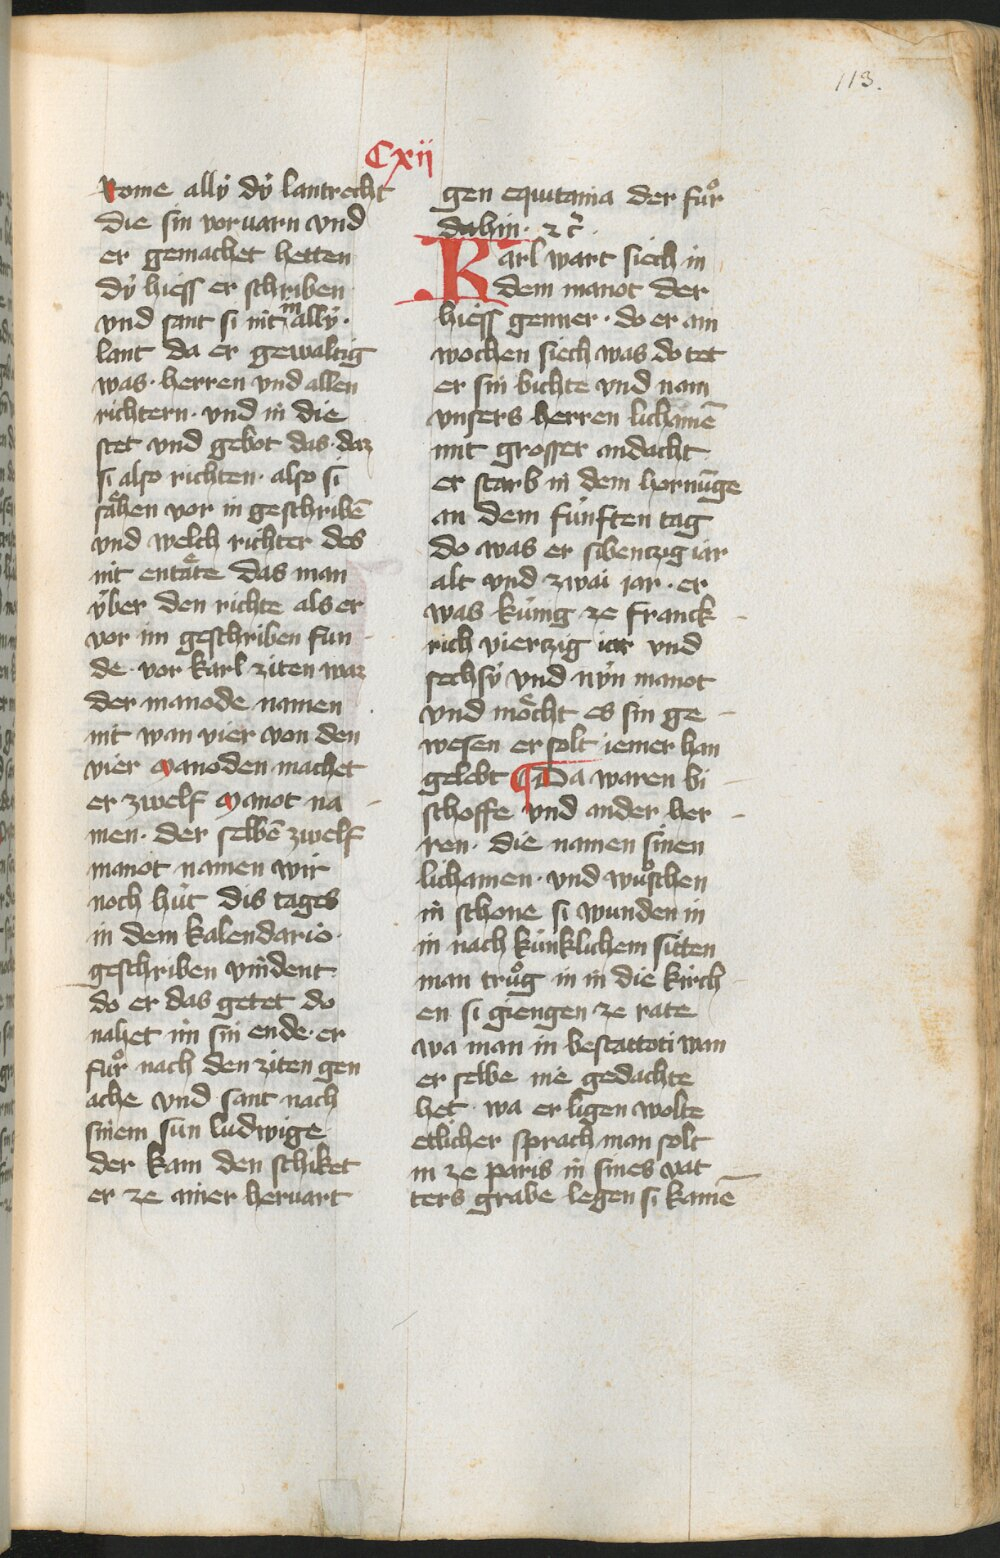 113.
Cxii
Rome allÿ dÿ lantrecht
die sin voruarn vnd
er gemachet hetten
dÿ hiess er schriben
vnd sant si mit in allÿ.
lant da er gewaltig
was. herren vnd allen
richtern. vnd in die
stet vnd gebot das. daz
si also richten. also si
sähen vor in geschribē
vnd welch richter des
nit entäte das man
v́ber den richte als er
vor im geschriben fun
de. vor karl ziten waz
der manode namen
nit wan vier von den
vier manoden machet
er zwelf manot na
men. der selbē zwelf
manot namen wir
noch hút dis tages
in dem kalendario
geschriben vindent
do er das getet do
nahet im sin ende. er
fuͦr nach den ziten gen
ache vnd sant nach
sinem sun ludwige
der kam den schiket
er ze ainer heruart
gen equitania der fuͦr
dahin. ⁊ c̃.
Karl wart siech in
dem manot der
hiess genner. do er ain
wochen siech was do tet
er sin bichte vnd nam
vnsers herren lichamē
mit grosser andacht
er starb in dem hornūge
an dem fúnften tag
do was er sibentzig iar
alt vnd zwai iar. er
was kúnig ze franck
rich viertzig iar vnd
sechsÿ vnd nÿn manot
vnd möcht es sin ge
wesen er solt iemer han
gelebt ¶ Da waren bi
schoffe vnd ander her
ren. die namen sinen
lichamen. vnd wuͦschen
in schone si wunden in
in nach kúnklichem sitten
man truͦg in in die kirch
en si giengen ze rate
wa man in bestattoti wan
er selbe nie gedachte
het. wa er ligen wolte
etlicher sprach man solt
in ze paris in sines vat
ters grabe legen si kamē